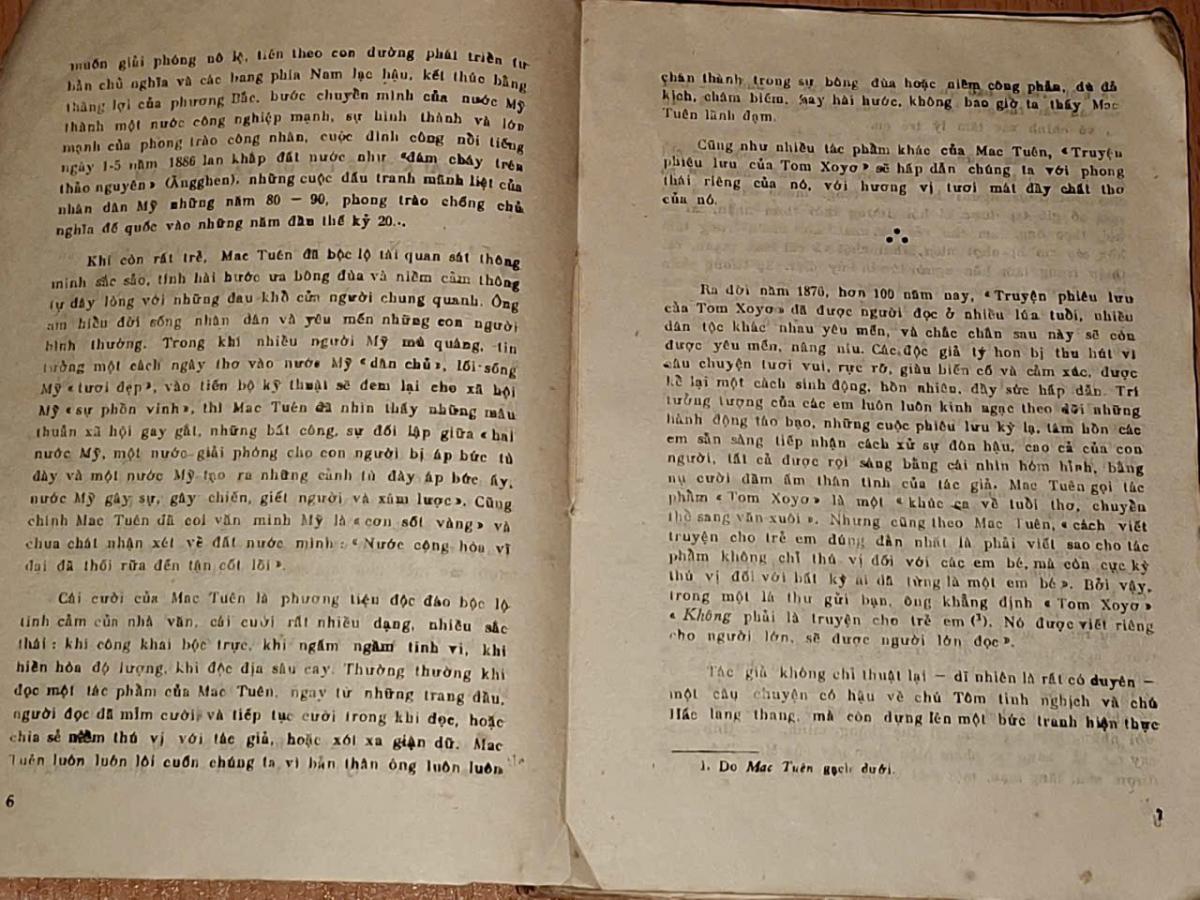 muốn giải phóng nô lệ, tiến theo con đường phát triển tư
bản chủ nghĩa và các bang phía Nam lạc hậu, kết thúc bằng
thắng lợi của phương Bắc, bước chuyển mình của nước Mỹ
thành một nước công nghiệp mạnh, sự hình thành và lớn
mạnh của phong trào công nhân, cuộc đình công nổi tiếng
ngày 1-5 năm 1886 lan khắp đất nước như «đám cháy trên
thảo nguyên» (Ăngghen), những cuộc đấu tranh mãnh liệt của
nhân dân Mỹ những năm 80 — 90, phong trào chống chủ
nghĩa đế quốc vào những năm đầu thế kỷ 20...
Khi còn rất trẻ, Mac Tuên đã bộc lộ tài quan sát thông
minh sắc sảo, tính hài hước ưa bông đùa và niềm cảm thông
tự đáy lòng với những đau khổ của người chung quanh. Ông
am hiểu đời sống nhân dân và yêu mến những con người
bình thường. Trong khi nhiều người Mỹ mù quáng, tin
tưởng một cách ngây thơ vào nước Mỹ «dân chủ», lối sống
Mỹ «tươi đẹp», vào tiến bộ kỹ thuật sẽ đem lại cho xã hội
Mỹ «sự phồn vinh», thì Mac Tuên đã nhìn thấy những mâu
thuẫn xã hội gay gắt, những bất công, sự đối lập giữa «hai
nước Mỹ, một nước giải phóng cho con người bị áp bức tù
đày và một nước Mỹ tạo ra những cảnh tù đày áp bức ấy,
nước Mỹ gây sự, gây chiến, giết người và xâm lược». Cũng
chính Mac Tuên đã coi văn minh Mỹ là «cơn sốt vàng» và
chua chát nhận xét về đất nước mình : «Nước cộng hòa vĩ
đại đã thối rữa đến tận cốt lõi».
Cái cười của Mac Tuên là phương tiện độc đáo bộc lộ
tình cảm của nhà văn, cái cười rất nhiều dạng, nhiều sắc
thái : khi công khai bộc trực, khi ngấm ngầm tinh vi, khi
hiền hòa độ lượng, khi độc địa sâu cay. Thường thường khi
đọc một tác phẩm của Mac Tuên, ngay từ những trang đầu,
người đọc đã mỉm cười, và tiếp tục cười trong khi đọc, hoặc
chia sẻ niềm thú vị với tác giả, hoặc xót xa giận dữ. Mac
Tuên luôn luôn lôi cuốn chúng ta vì bản thân ông luôn luôn
6
chân thành trong sự bông đùa hoặc niềm công phẫn, dù đả
kích, châm biếm, hay hài hước, không bao giờ ta thấy Mac
Tuên lãnh đạm.
Cũng như nhiều tác phẩm khác của Mac Tuên, «Truyện
phiêu lưu của Tom Xoyơ» sẽ hấp dẫn chúng ta với phong
thái riêng của nó, với hương vị tươi mát đầy chất thơ
của nó.
Ra đời năm 1876, hơn 100 năm nay, «Truyện phiêu lưu
của Tom Xoyơ» đã được người đọc ở nhiều lứa tuổi, nhiều
dân tộc khác nhau yêu mến, và chắc chắn sau này sẽ còn
được yêu mến, nâng niu. Các độc giả tý hon bị thu hút vì
câu chuyện tươi vui, rực rỡ, giàu biến cố và cảm xúc, được
kể lại một cách sinh động, hồn nhiên, đầy sức hấp dẫn. Trí
tưởng tượng của các em luôn luôn kinh ngạc theo dõi những
hành động táo bạo, những cuộc phiêu lưu kỳ lạ, tâm hồn các
em sẵn sàng tiếp nhận cách xử sự đôn hậu, cao cả của con
người, tất cả được rọi sáng bằng cái nhìn hóm hỉnh, bằng
nụ cười đằm ấm thân tình của tác giả. Mac Tuên gọi tác
phẩm «Tom Xoyơ» là một «khúc ca về tuổi thơ, chuyển
thể sang văn xuôi». Nhưng cũng theo Mac Tuên, «cách viết
truyện cho trẻ em đúng đắn nhất là phải viết sao cho tác
phẩm không chỉ thú vị đối với các em bé, mà còn cực kỳ
thú vị đối với bất kỳ ai đã từng là một em bé». Bởi vậy,
trong một lá thư gửi bạn, ông khẳng định «Tom Xoyơ»
«Không phải là truyện cho trẻ em (¹). Nó được viết riêng
cho người lớn, sẽ được người lớn đọc».
Tác giả không chỉ thuật lại — dĩ nhiên là rất có duyên —
một câu chuyện có hậu về chú Tôm tinh nghịch và chú
Hắc lang thang, mà còn dựng lên một bức tranh hiện thực
1. Do Mac Tuên gạch dưới.